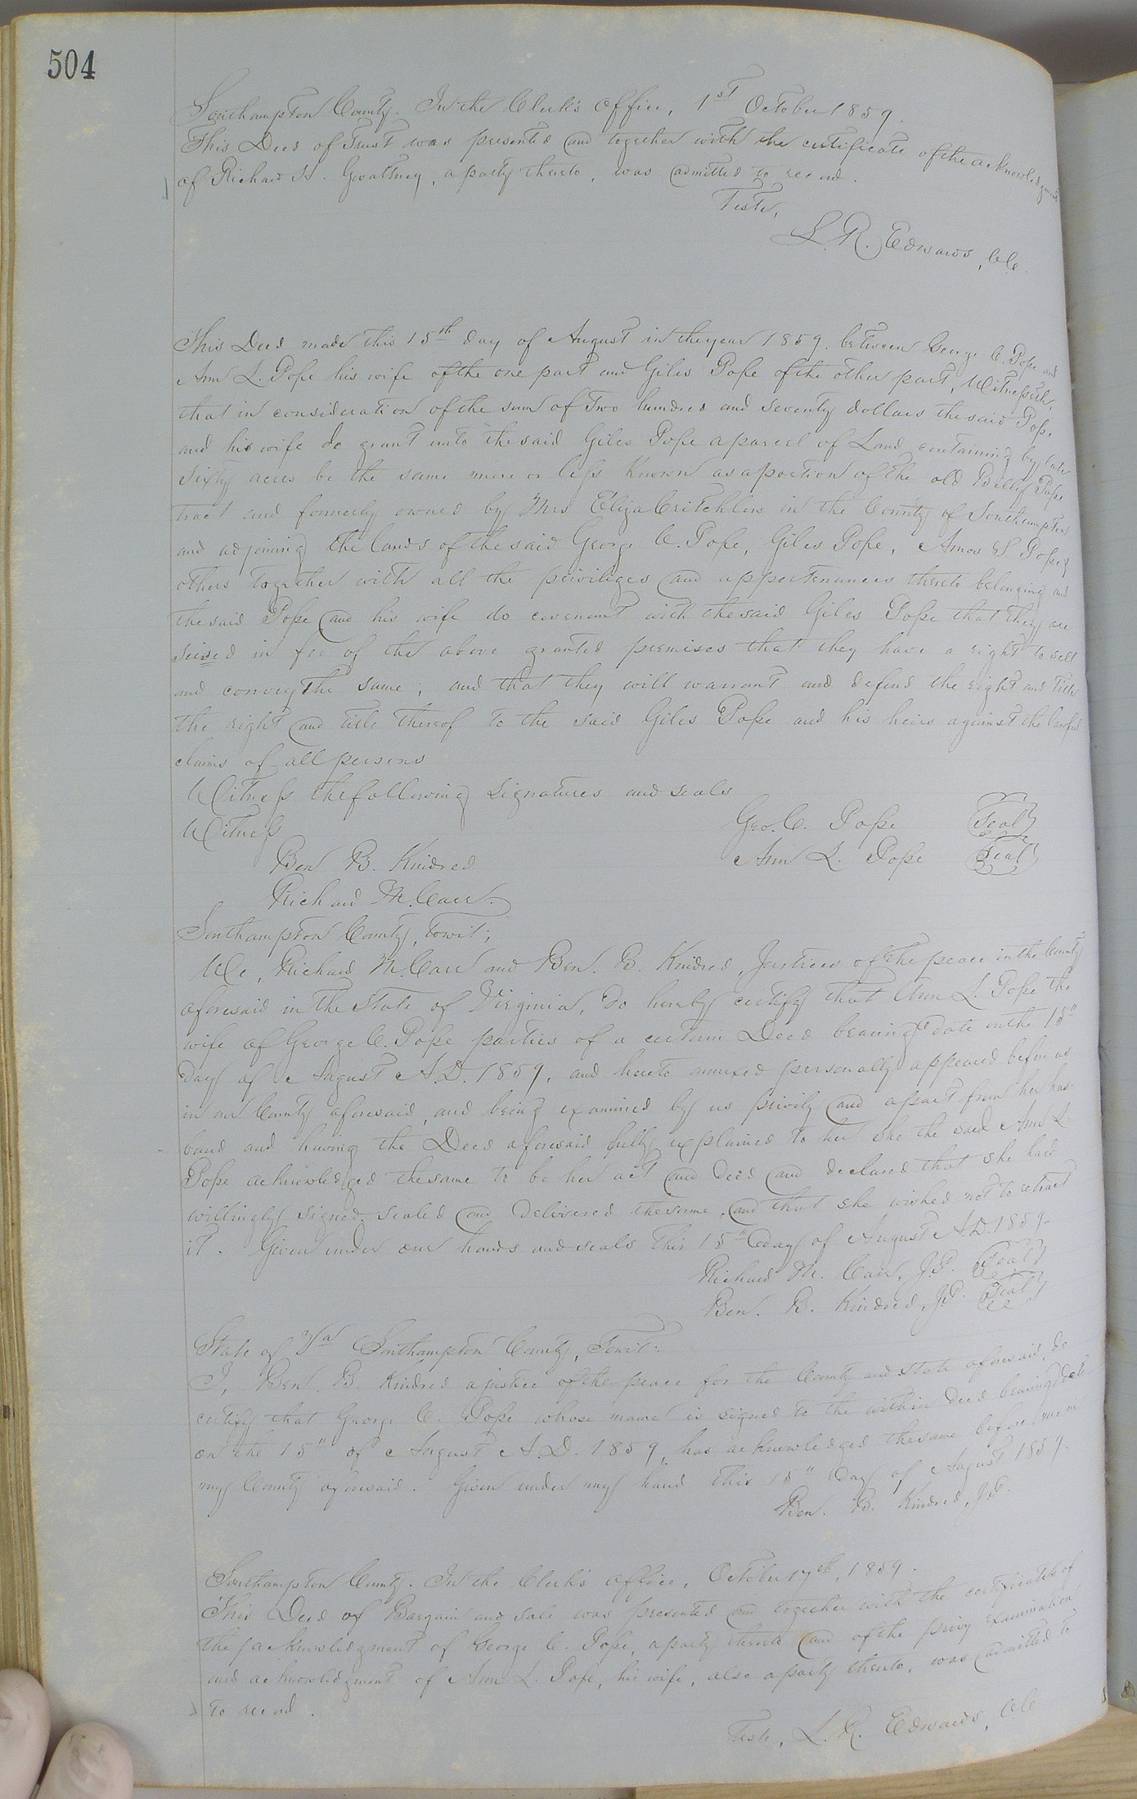 504
Southampton County. In the Clerk's office, 1st October 1859.
This Deed of Trust was presented and together with the certificate of the acknowledgment
of Richard H. Gwaltney, a party thereto, was admitted to record.
Teste,
L. R. Edwards, C.C.
This Deed made this 15th day of August in the year 1859. between George C. Pope and
Ann L. Pope his wife of the one part and Giles Pope of the other part, Witnesseth,
that in consideration of the sum of Two hundred and seventy dollars the said Pope
and his wife do grant unto the said Giles Pope a parcel of Land containing by
Sixty acres be the same more or less known as a portion of the old Billy Pope
tract and formerly owned by Mrs Eliza Critchlow in the County of Southampton
and adjoining the lands of the said George C. Pope, Giles Pope, Amos S Pope &
others together with all the priviliges and appertenances thereto belonging and
the said Pope and his wife do covenant with the said Giles Pope that they are
seised in fee of the above granted premises that they have a right to sell
and convey the same, and that they will warrant and defend the right and title
the right and title thereof to the said Giles Pope and his heirs against the lawful
claims of all persons
Witness the following signatures and seals
Witness
Geo. C. Pope Seal
Ben B. Kindred
Ann L. Pope Seal
Richard M. Carr.
Southampton County, towit;
We, Richard M. Carr and Ben. B. Kindred, Justices of the peace in the County
aforesaid in the State of Virginia, do hereby certify that Ann L. Pope the
wife of George C. Pope parties of a certain Deed bearing date on the 15"
day of August A.D. 1859, and hereto annexed personally appeared before us
in our County aforesaid, and being examined by us privily and apart from her hus
band and having the Deed aforesaid fully explained to her she the said Ann L.
Pope acknowledged the same to be her act and deed and declared that she had
willingly signed, sealed and delivered the same, and that she wished not to retract
it. Given under our hands and seals this 15" day of August A.D. 1859.
Richard M. Carr, J.P. Seal
Ben. B. Kindred, J.P. Seal
State of Va Southampton County, Towit:
I, Ben. B. Kindred a justice of the peace for the County and State aforesaid, do
certify that George C. Pope whose name is signed to the within Deed bearing date
on the 15" of August A.D. 1859, has acknowledged the same before me in
my County aforesaid. Given under my hand this 15" day of August 1859.
Ben. B. Kindred, J.P.
Southampton County. In the Clerk's office, October 17th, 1859.
This Deed of Bargain and sale was presented and together with the certificates of
the acknowledgment of George C. Pope, a party thereto and of the privy examination
and acknowledgment of Ann L. Pope, his wife, also a party thereto, was admitted to
to record.
Teste, L. R. Edwards, C.C.